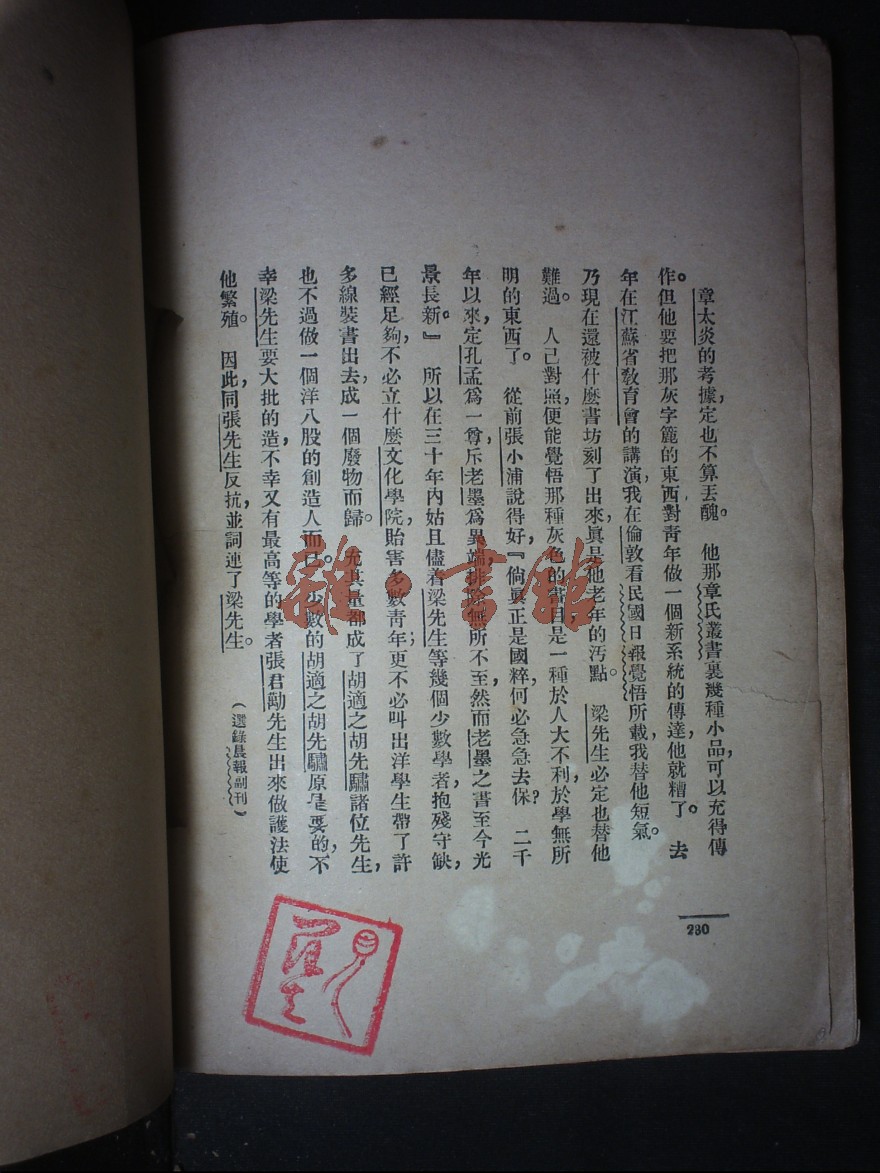 章太炎的考據，定也不算丟醜。　他那章氏叢書裏幾種小品，可以充得傳
作。但他要把那灰字簏的東西對靑年做一個新系統的傳達，他就糟了。　去
年在江蘇省敎育會的講演，我在倫敦看民國日報覺悟所載，我替他短氣。
乃現在還被什麼書坊刻了出來，眞是他老年的汚點　梁先生必定也替他
難過。　人己對照，便能覺悟那種灰色的書目，是一種於人大不利，於學無所
明的東西了。　從前張小浦說得好，『倘裏正是國粹，何必急急去保？　二千
年以來，定孔孟爲一尊，斥老墨爲異端，排除無所不至，然而老墨之書至今光
景長新。』　所以在三十年內姑且儘着梁先生等幾個少數學者，抱殘守缺，
已經足夠，不必立什麼文化學院，貽害多數靑年；更不必叫出洋學生帶了許
多線裝書出去，成一個廢物而歸。　充其量都成了胡適之胡先驌諸位先生，
也不過做一個洋八股的創造人而已。　少數的胡適之胡先驌原是要的，不
幸梁先生要大批的造，不幸又有最高等的學者張君勱先生出來做護法使
他繁殖。　因此，同張先生反抗，並詞連了梁先生。　（選錄晨報副刊）
280
雜·書館